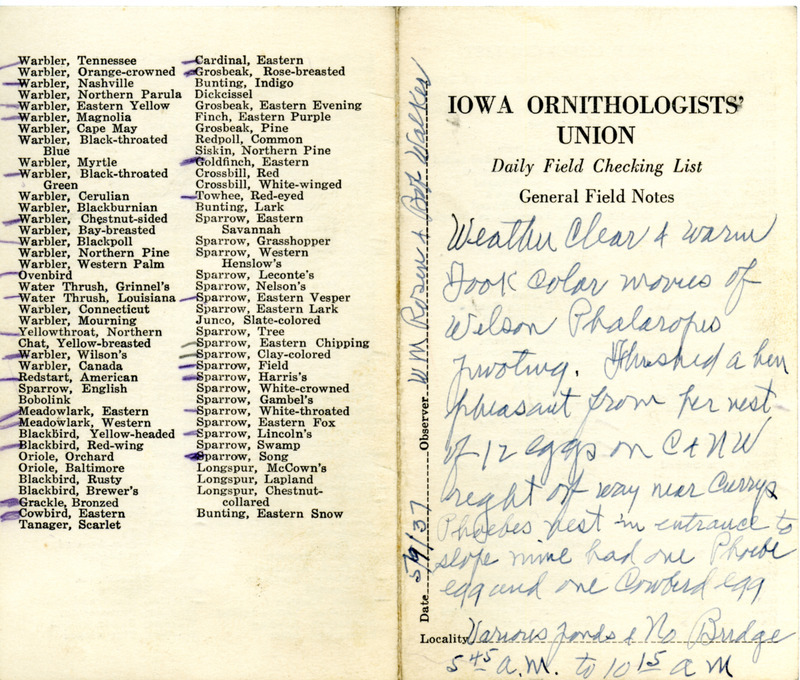 Warbler, Tennessee
Warbler, Orange-crowned
Warbler, Nashville
Warbler, Northern Parula
Warbler, Eastern Yellow
Warbler, Magnolia
Warbler, Cape May
Warbler, Black-throated
Blue
Warbler, Myrtle
Warbler, Black-throated
Green
Warbler, Cerulian
Warbler, Blackburnian
Warbler, Chestnut-sided
Warbler, Bay-breasted
Warbler, Blackpoll
Warbler, Northern Pine
Warbler, Western Palm
Ovenbird
Water Thrush, Grinnel's
Water Thrush, Louisiana
Warbler, Connecticut
Warbler, Mourning
Yellowthroat, Northern
Chat, Yellow-breasted
Warbler, Wilson's
Warbler, Canada
Redstart, American
Sparrow, English
Bobolink
Meadowlark, Eastern
Meadowlark, Western
Blackbird, Yellow-headed
Blackbird, Red-wing
Oriole, Orchard
Oriole, Baltimore
Blackbird, Rusty
Blackbird, Brewer's
Grackle, Bronzed
Cowbird, Eastern
Tanager, Scarlet
Cardinal, Eastern
Grosbeak, Rose-breasted
Bunting, Indigo
Dickcissel
Grosbeak, Eastern Evening
Finch, Eastern Purple
Grosbeak, Pine
Redpoll, Common
Siskin, Northern Pine
Goldfinch, Eastern
Crossbill, Red
Crossbill, White-winged
Towhee, Red-eyed
Bunting, Lark
Sparrow, Eastern
Savannah
Sparrow, Grasshopper
Sparrow, Western
Henslow's
Sparrow, Leconte's
Sparrow, Nelson's
Sparrow, Eastern Vesper
Sparrow, Eastern Lark
Junco, Slate-colored
Sparrow, Tree
Sparrow, Eastern Chipping
Sparrow, Clay-colored
Sparrow, Field
Sparrow, Harris's
Sparrow, White-crowned
Sparrow, Gambel's
Sparrow, White-throated
Sparrow, Eastern Fox
Sparrow, Lincoln's
Sparrow, Swamp
Sparrow, Song
Longspur, McCown's
Longspur, Lapland
Longspur, Chestnut-
collared
Bunting, Eastern Snow
Date 5/9/37 Observer Wm Rosen & Bob Walker
IOWA ORNITHOLOGISTS'
UNION
Daily Field Checking List
General Field Notes
Weather Clear & warm
Took color movies of
Wilson Phalaropes
pivoting. Flushed a hen
pheasant from her nest
of 12 eggs on C & NW
right of way near Currys
Phoebes nest in entrance to
slope mine had one Phoebe
egg and one Cowbird egg
Locality Various ponds & No Bridge
5 45 A.M. to 10 15 A M